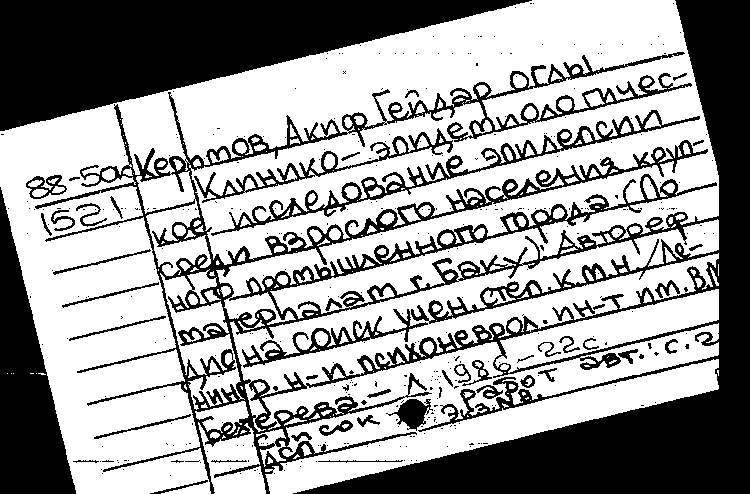 88-5ак Керимов, Акиф Гейдар оглы
1521 Клинико-эпидемиологичес-
кое исследование эпилепсии
среди взрослого населения круп-
ного промышленного города. (По
материалам г. Баку). Автореф.
на соиск учен. степ. к.м.н /Ле-
нингр. н.-и. психоневрол. ин-т им. В.М
Бехтерева. - Л, 1986-22с.
Список работ авт.: с. 2
Дсп. Экз. №8.